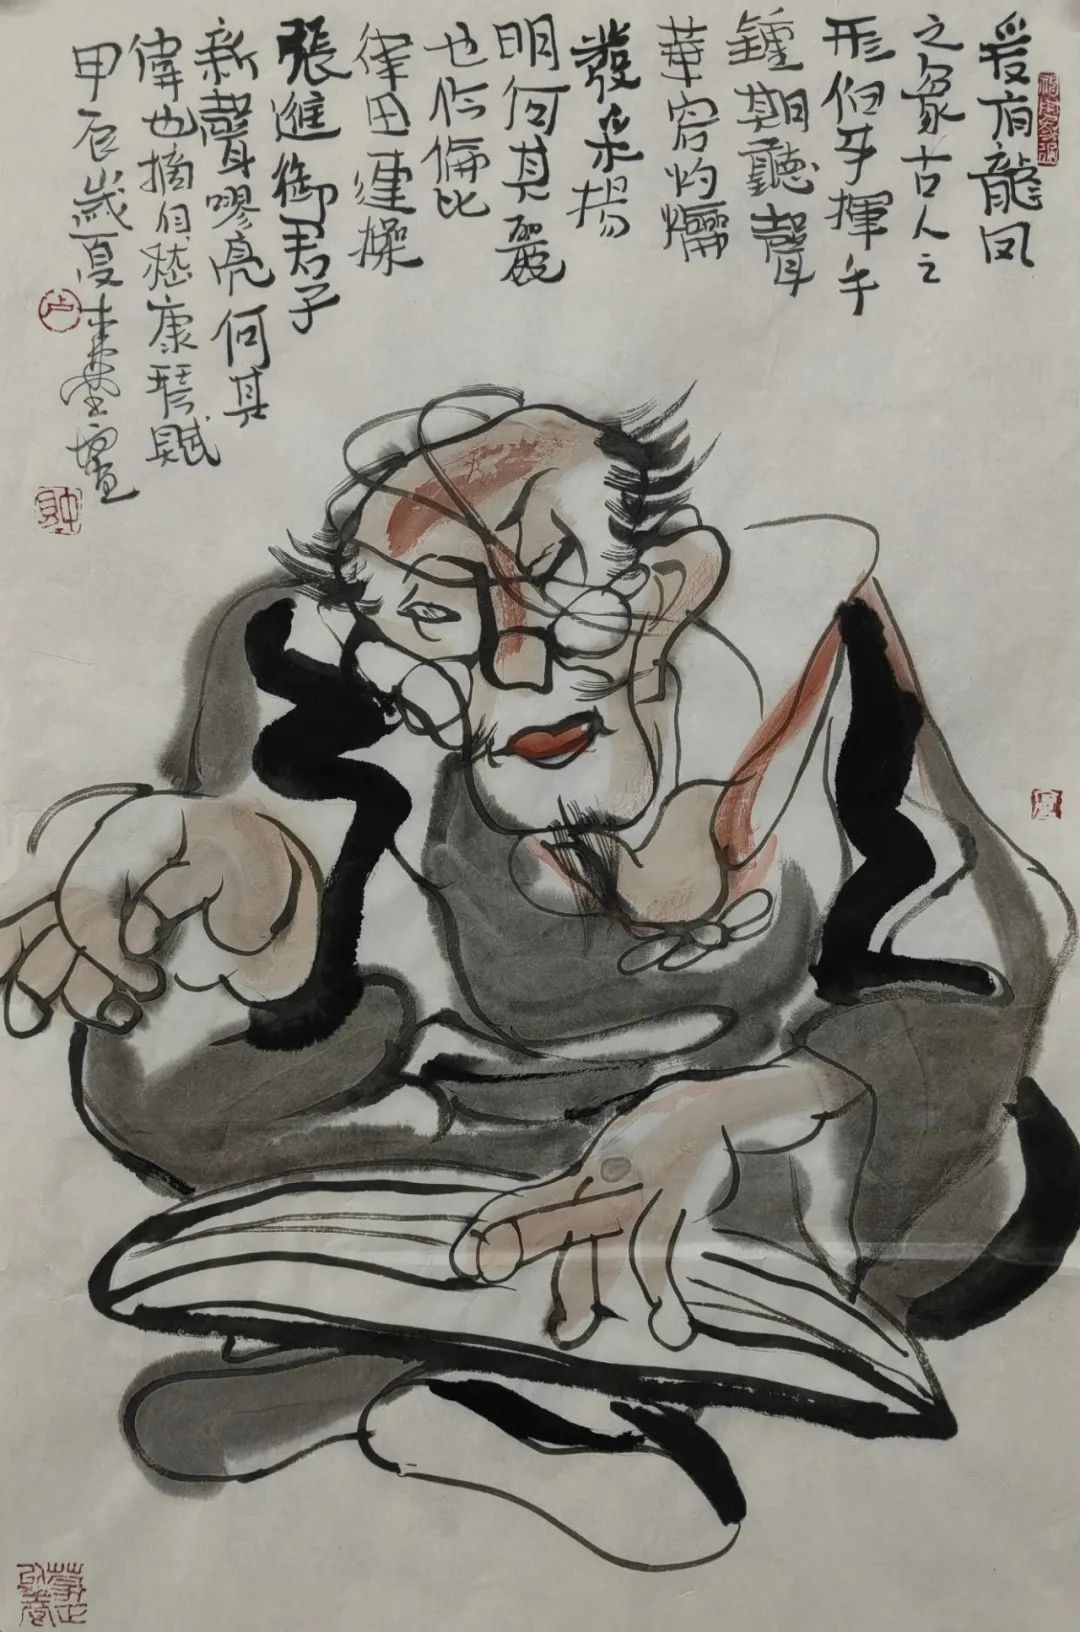 爰有龍凤
之象古人之
形伯牙揮手
鍾期聽聲
華容灼爚
發采揚
明何其麗
也伶倫比
律田連操
張進御君子
新聲嘐亮何其
偉也摘自嵇康琴賦
甲辰歲夏
卢